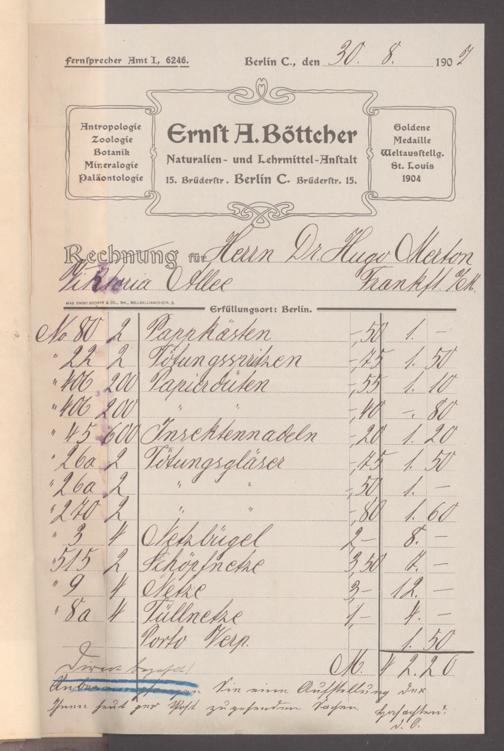 Fernsprecher Amt I, 6246.
Berlin C., den 30. 8. 1907
Antropologie
Zoologie
Botanik
Mineralogie
Paläontologie
Ernst A. Böttcher
Naturalien- und Lehrmittel-Anstalt
15. Brüderstr. Berlin C. Brüderstr. 15.
Goldene
Medaille
Weltausstellg.
St. Louis
1904
Rechnung für Herrn Dr. Hugo Merton
Viktoria Allee Frankft
Erfüllungsort: Berlin.
No 80 2 Pappkästen -,50 1. –
" 22 2 Tötungsspritzen -,75 1. 50
" 406 200 Papierdüten -,55 1. 10
" 406 200 " " -40 -. 80
" 45 600 Insektennadeln -,20 1. 20
" 26a 2 Tötungsgläser -,75 1. 50
" 26a 2 " " -,50 1. –
" 270 2 " " -,80 1. 60
" 3 4 Netzbügel 2 – 8. –
" 515 2 Schöpfnetze 3,50 7. –
" 9 4 Netze 3,- 12. –
" 8a 4 Tüllnetze 1,- 4. –
Porto Verp. 1. 50
M. 42.20
Sie eine Aufstellung der
Ihnen heut per Post zugehenden Sachen